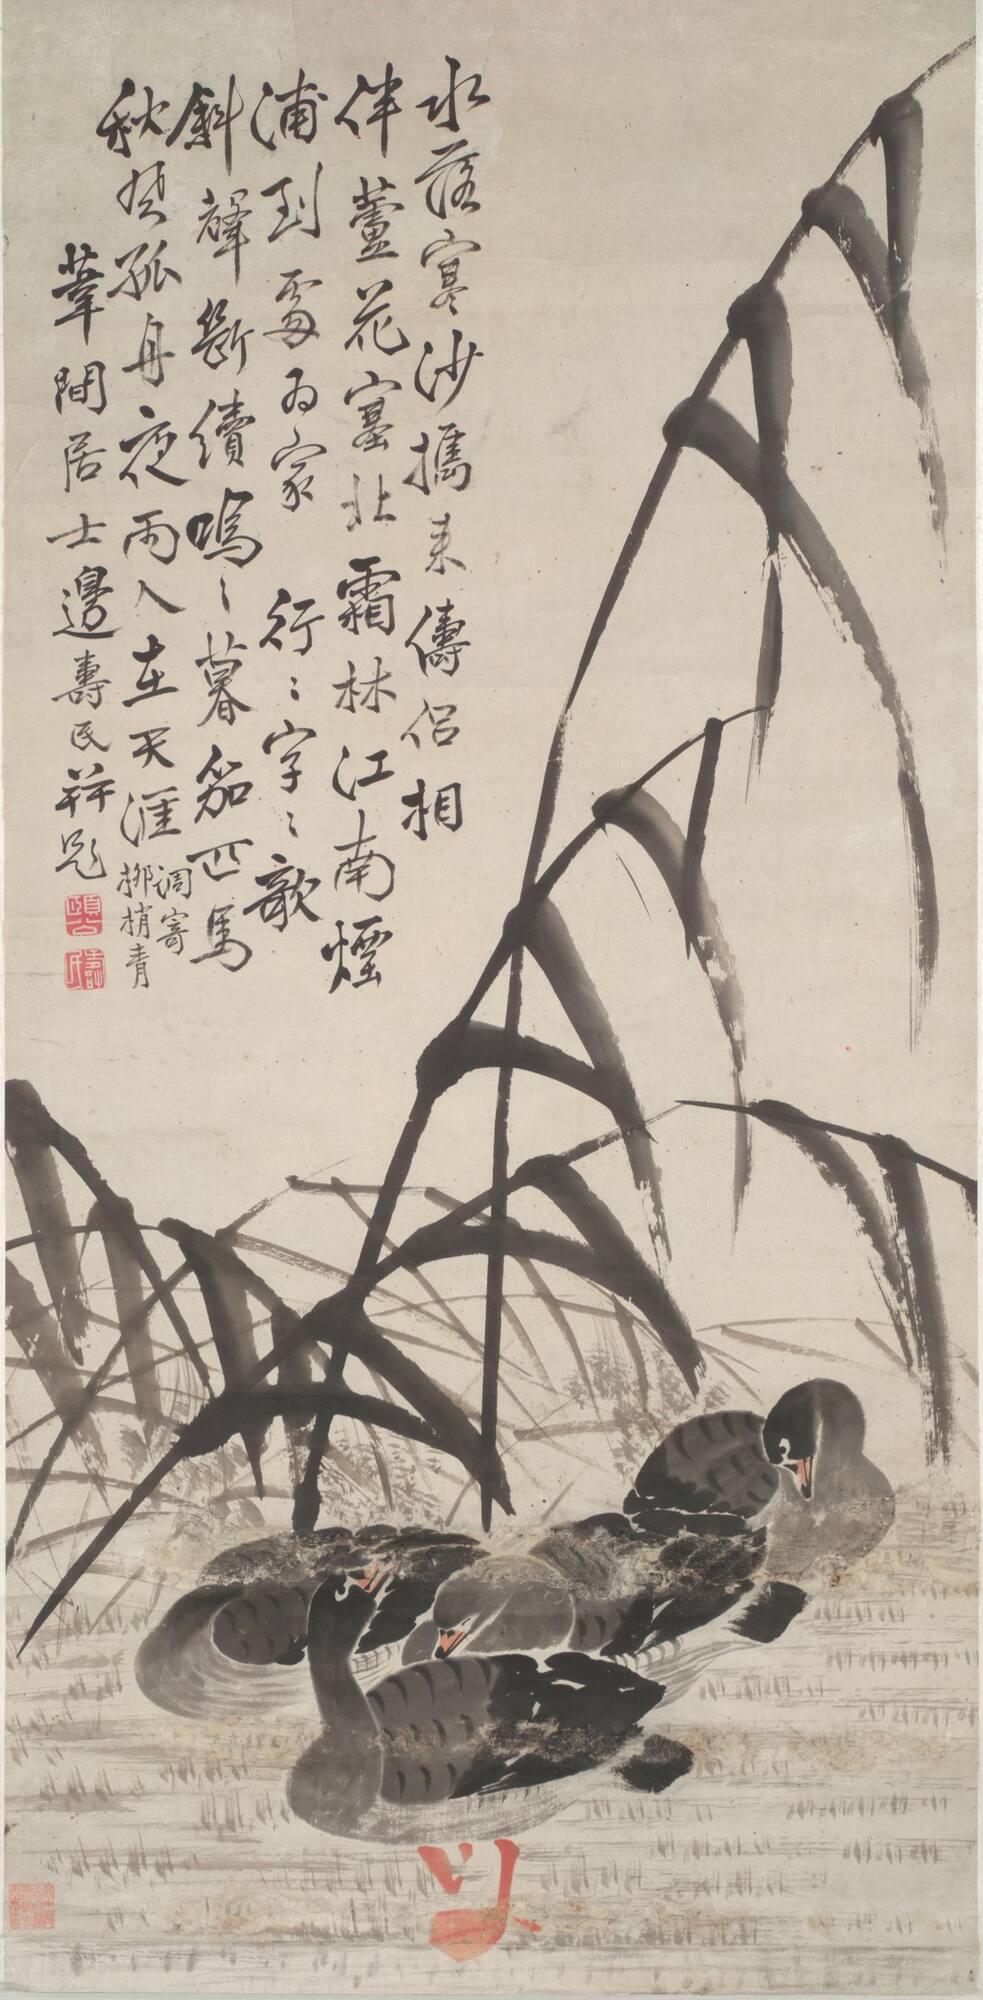 水落寒沙攜來儔侶相
伴蘆花塞北霜林江南煙
浦到處为家 行〻字〻欹
斜聲斷續嗚〻暮笳匹馬
秋風孤舟夜雨人在天涯 調寄
柳梢青
葦間居士邊壽民并題
頤公
壽民